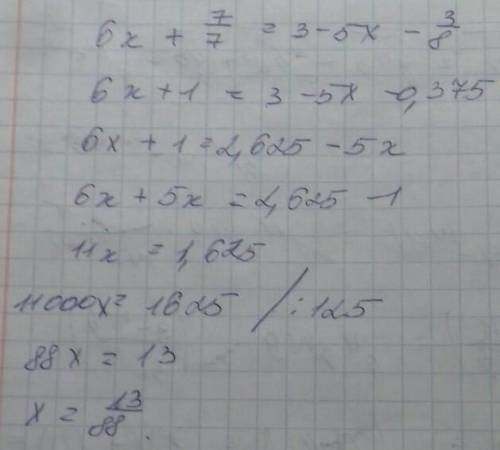 6x + 7/7 = 3 - 5x - 3/8
6x + 1 = 3 - 5x - 0,375
6x + 1 = 2,625 - 5x
6x + 5x = 2,625 - 1
11x = 1,625
11000x = 1625 /:125
88x = 13
x = 13/88.